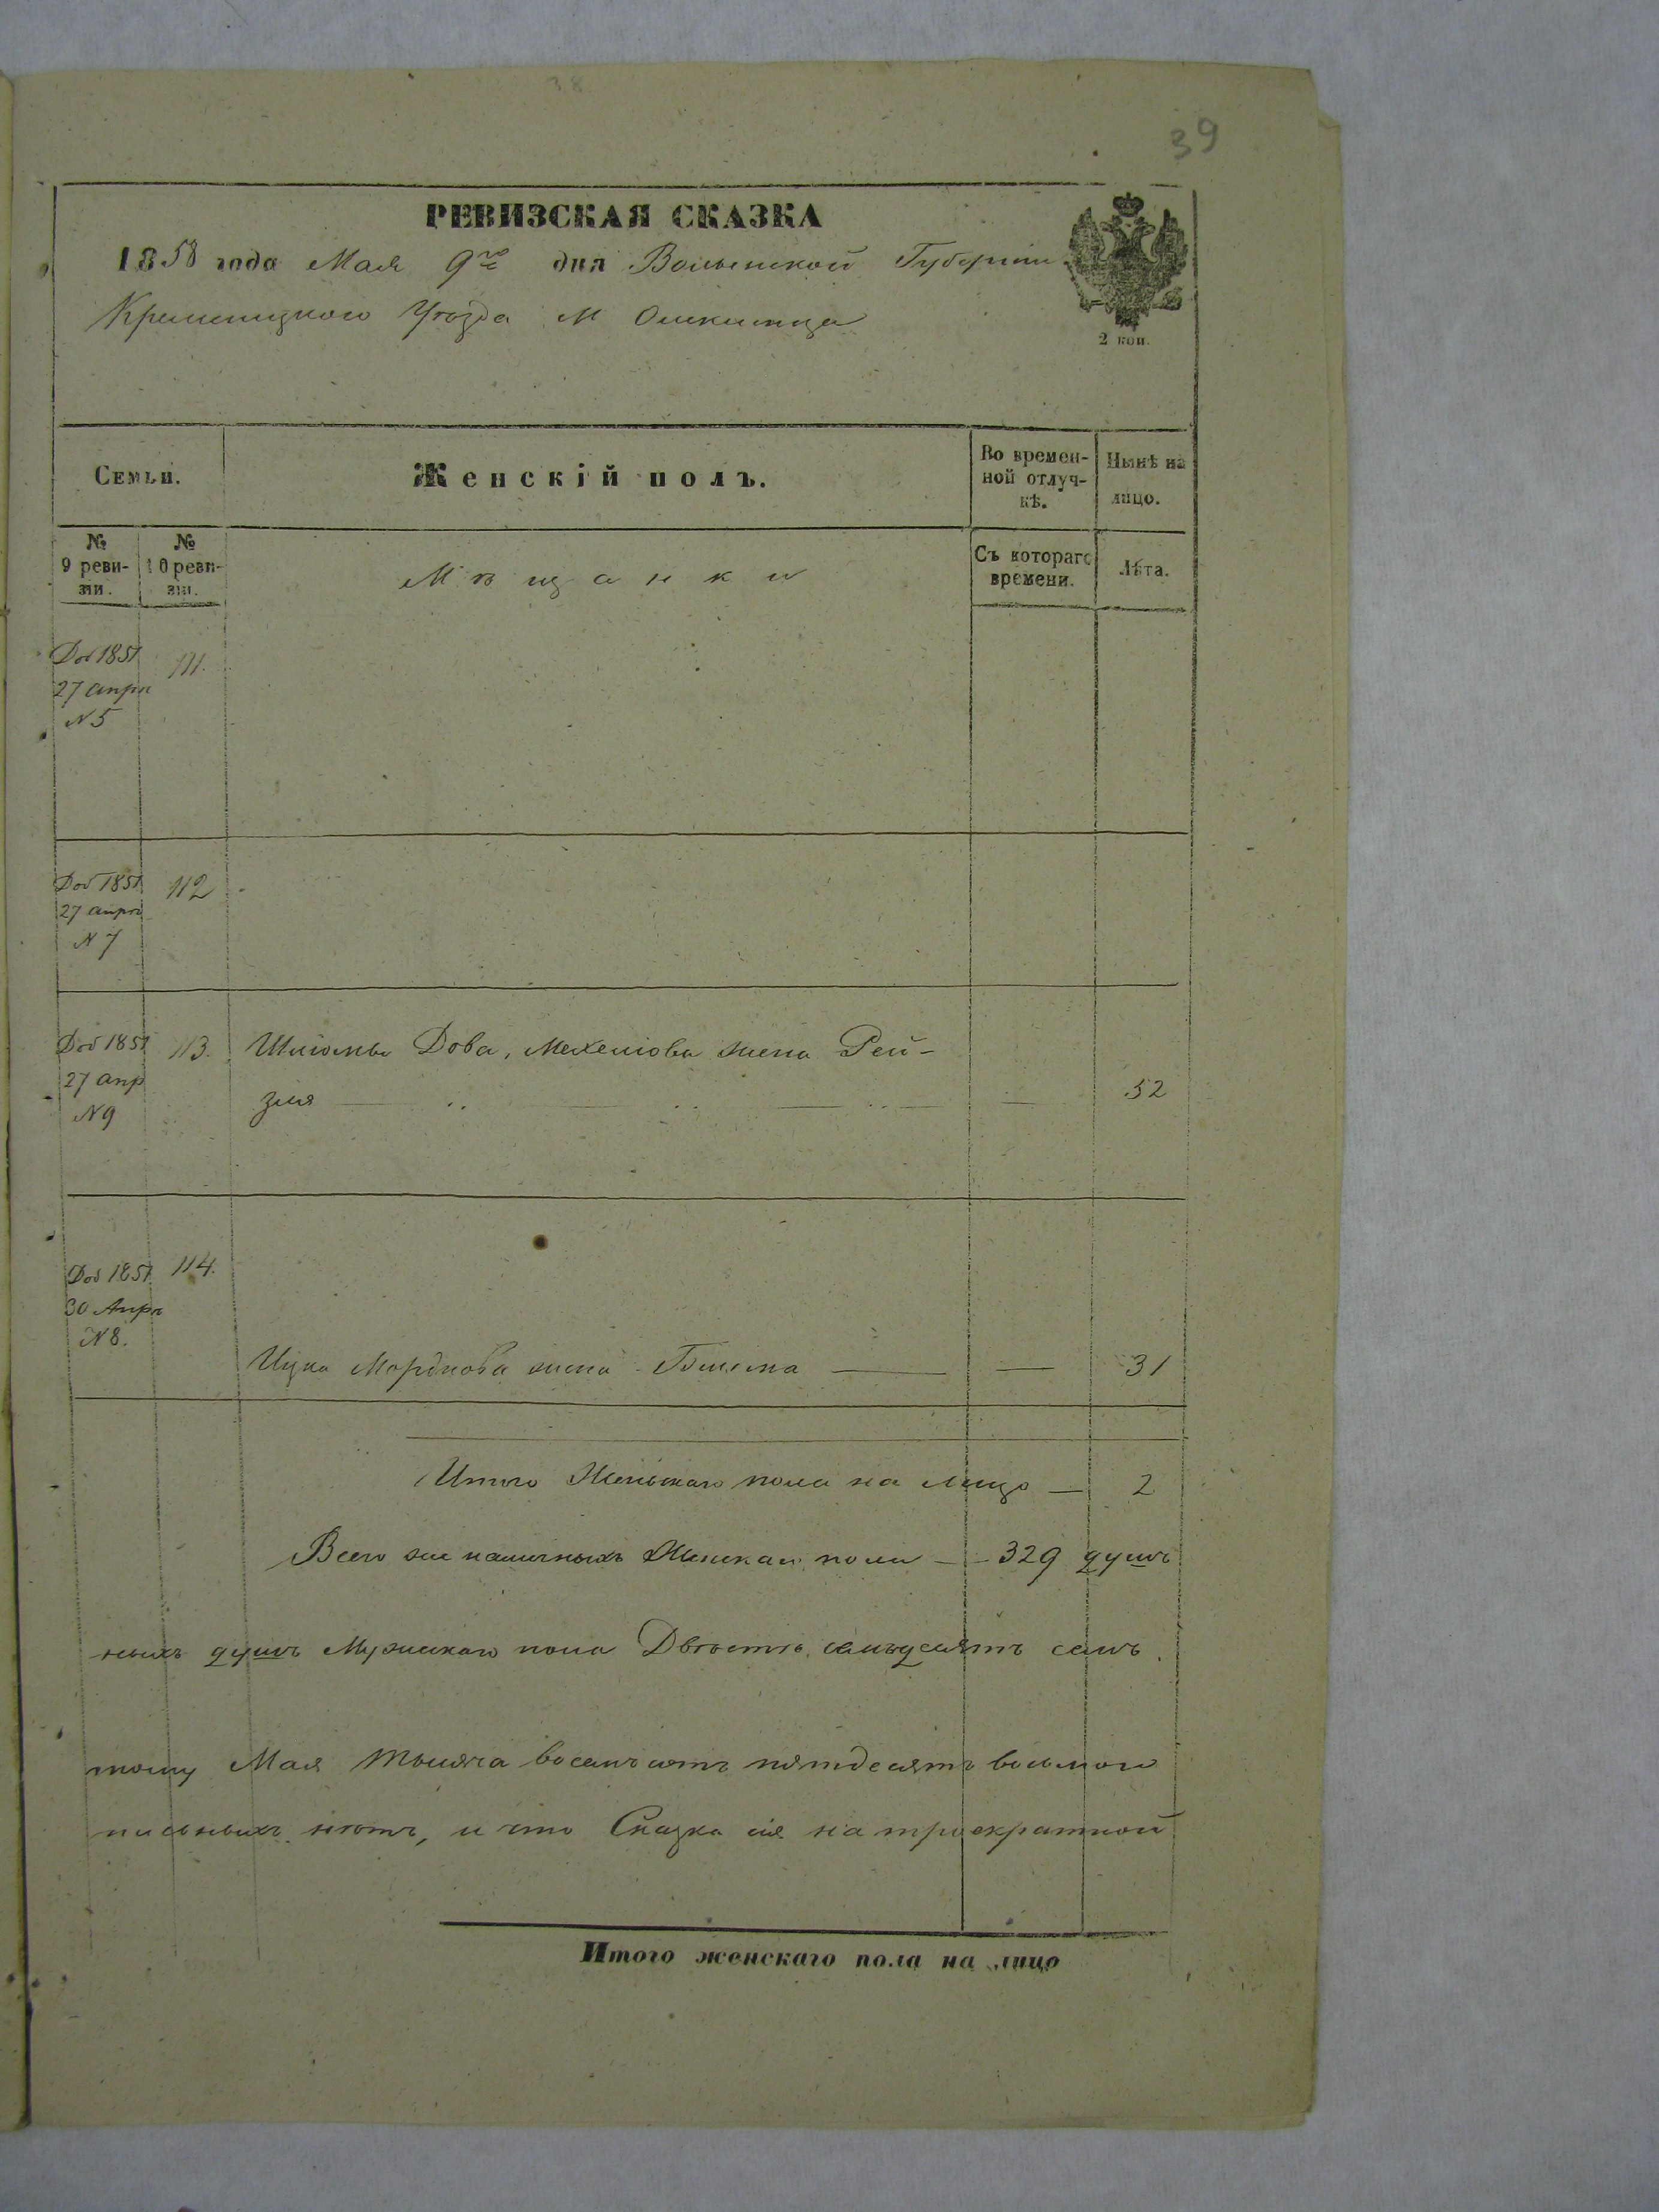 38
39
РЕВИЗСКАЯ СКАЗКА
1858 года Мая 9го дня Волынской Губернiи
Кременецкого Уѣзда М Олексинца
2 коп.
Семьи.
Женскiй полъ.
Во времен-
ной отлуч-
кѣ.
Нынѣ на
лицо.
№
9 реви-
зiи.
№
10 реви-
зiи.
Мѣщанки
Съ котораго
времени.
Лѣта.
Доб 1851
27 апрл
N 5
111.
Доб 1851
27 апрл
N 7
112
Доб 1851
27 апр
N 9
113.
Шлiомы Дова, Мехелiова жена Рей-
зля — — — — 52
Доб 1851
30 Апрл
N 8.
114.
Ицка Мордкова жена — — 31
Итого Женскаго пола на лицо — 2
Всего же наличныхъ Женскаго пола — 329 душъ
ныхъ душъ Мужскаго пола Двѣсти семьдесятъ семь.
тому Мая Тысяча восемъсотъ пятдесятъ восьмого
письныхъ нѣтъ, и что Сказка сiя на троекратной
Итого женскаго пола на лицо